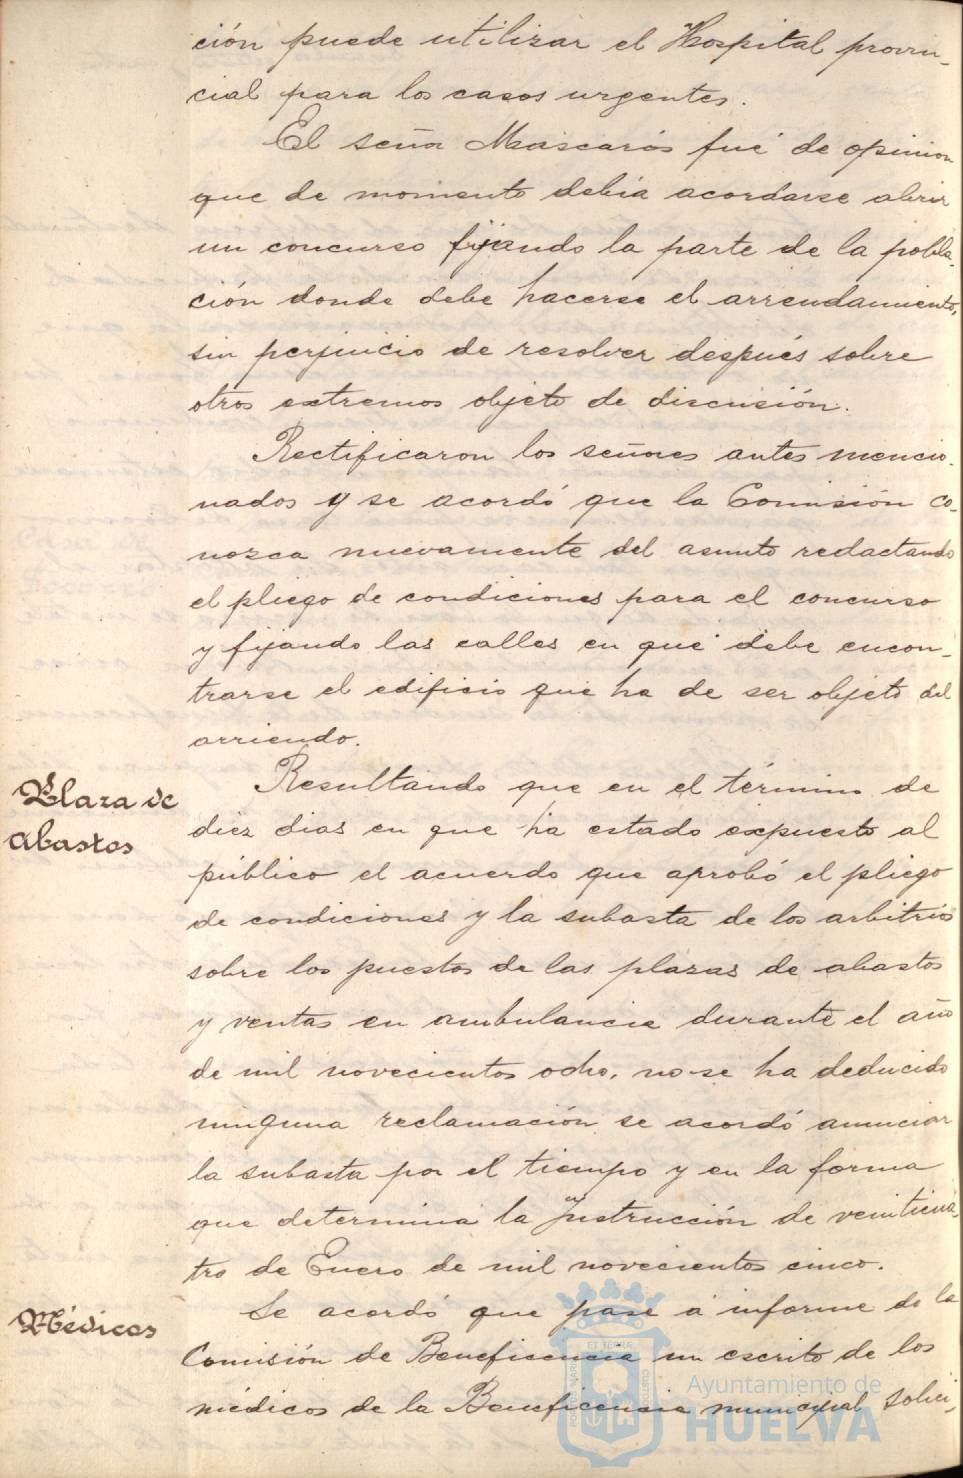 ción puede utilizar el Hospital provin-
cial para los casos urgentes.
El señor Mascarós fué de opinion
que de momento debia acordarse abrir
un concurso fijando la parte de la pobla-
ción donde debe hacerse el arrendamiento,
sin perjuicio de resolver después sobre
otros extremos objeto de discusión.
Rectificaron los señores antes mencio-
nados y se acordó que la Comisión co-
nozca nuevamente del asunto redactando
el pliego de condiciones para el concurso
y fijando las calles en que debe encon-
trarse el edificio que ha de ser objeto del
arriendo.
Plaza de
Abastos
Resultando que en el término de
diez dias en que ha estado expuesto al
público el acuerdo que aprobó el pliego
de condiciones y la subasta de los arbitrios
sobre los puestos de las plazas de abastos
y ventas en ambulancia durante el año
de mil novecientos ocho, no se ha deducido
ninguna reclamación se acordó anunciar
la subasta por el tiempo y en la forma
que determina la Instrucción de veinticua-
tro de Enero de mil novecientos cinco.
Médicos
Se acordó que pase á informe de la
Comisión de Beneficencia un escrito de los
médicos de la Beneficencia municipal solici-
Ayuntamiento de
HUELVA